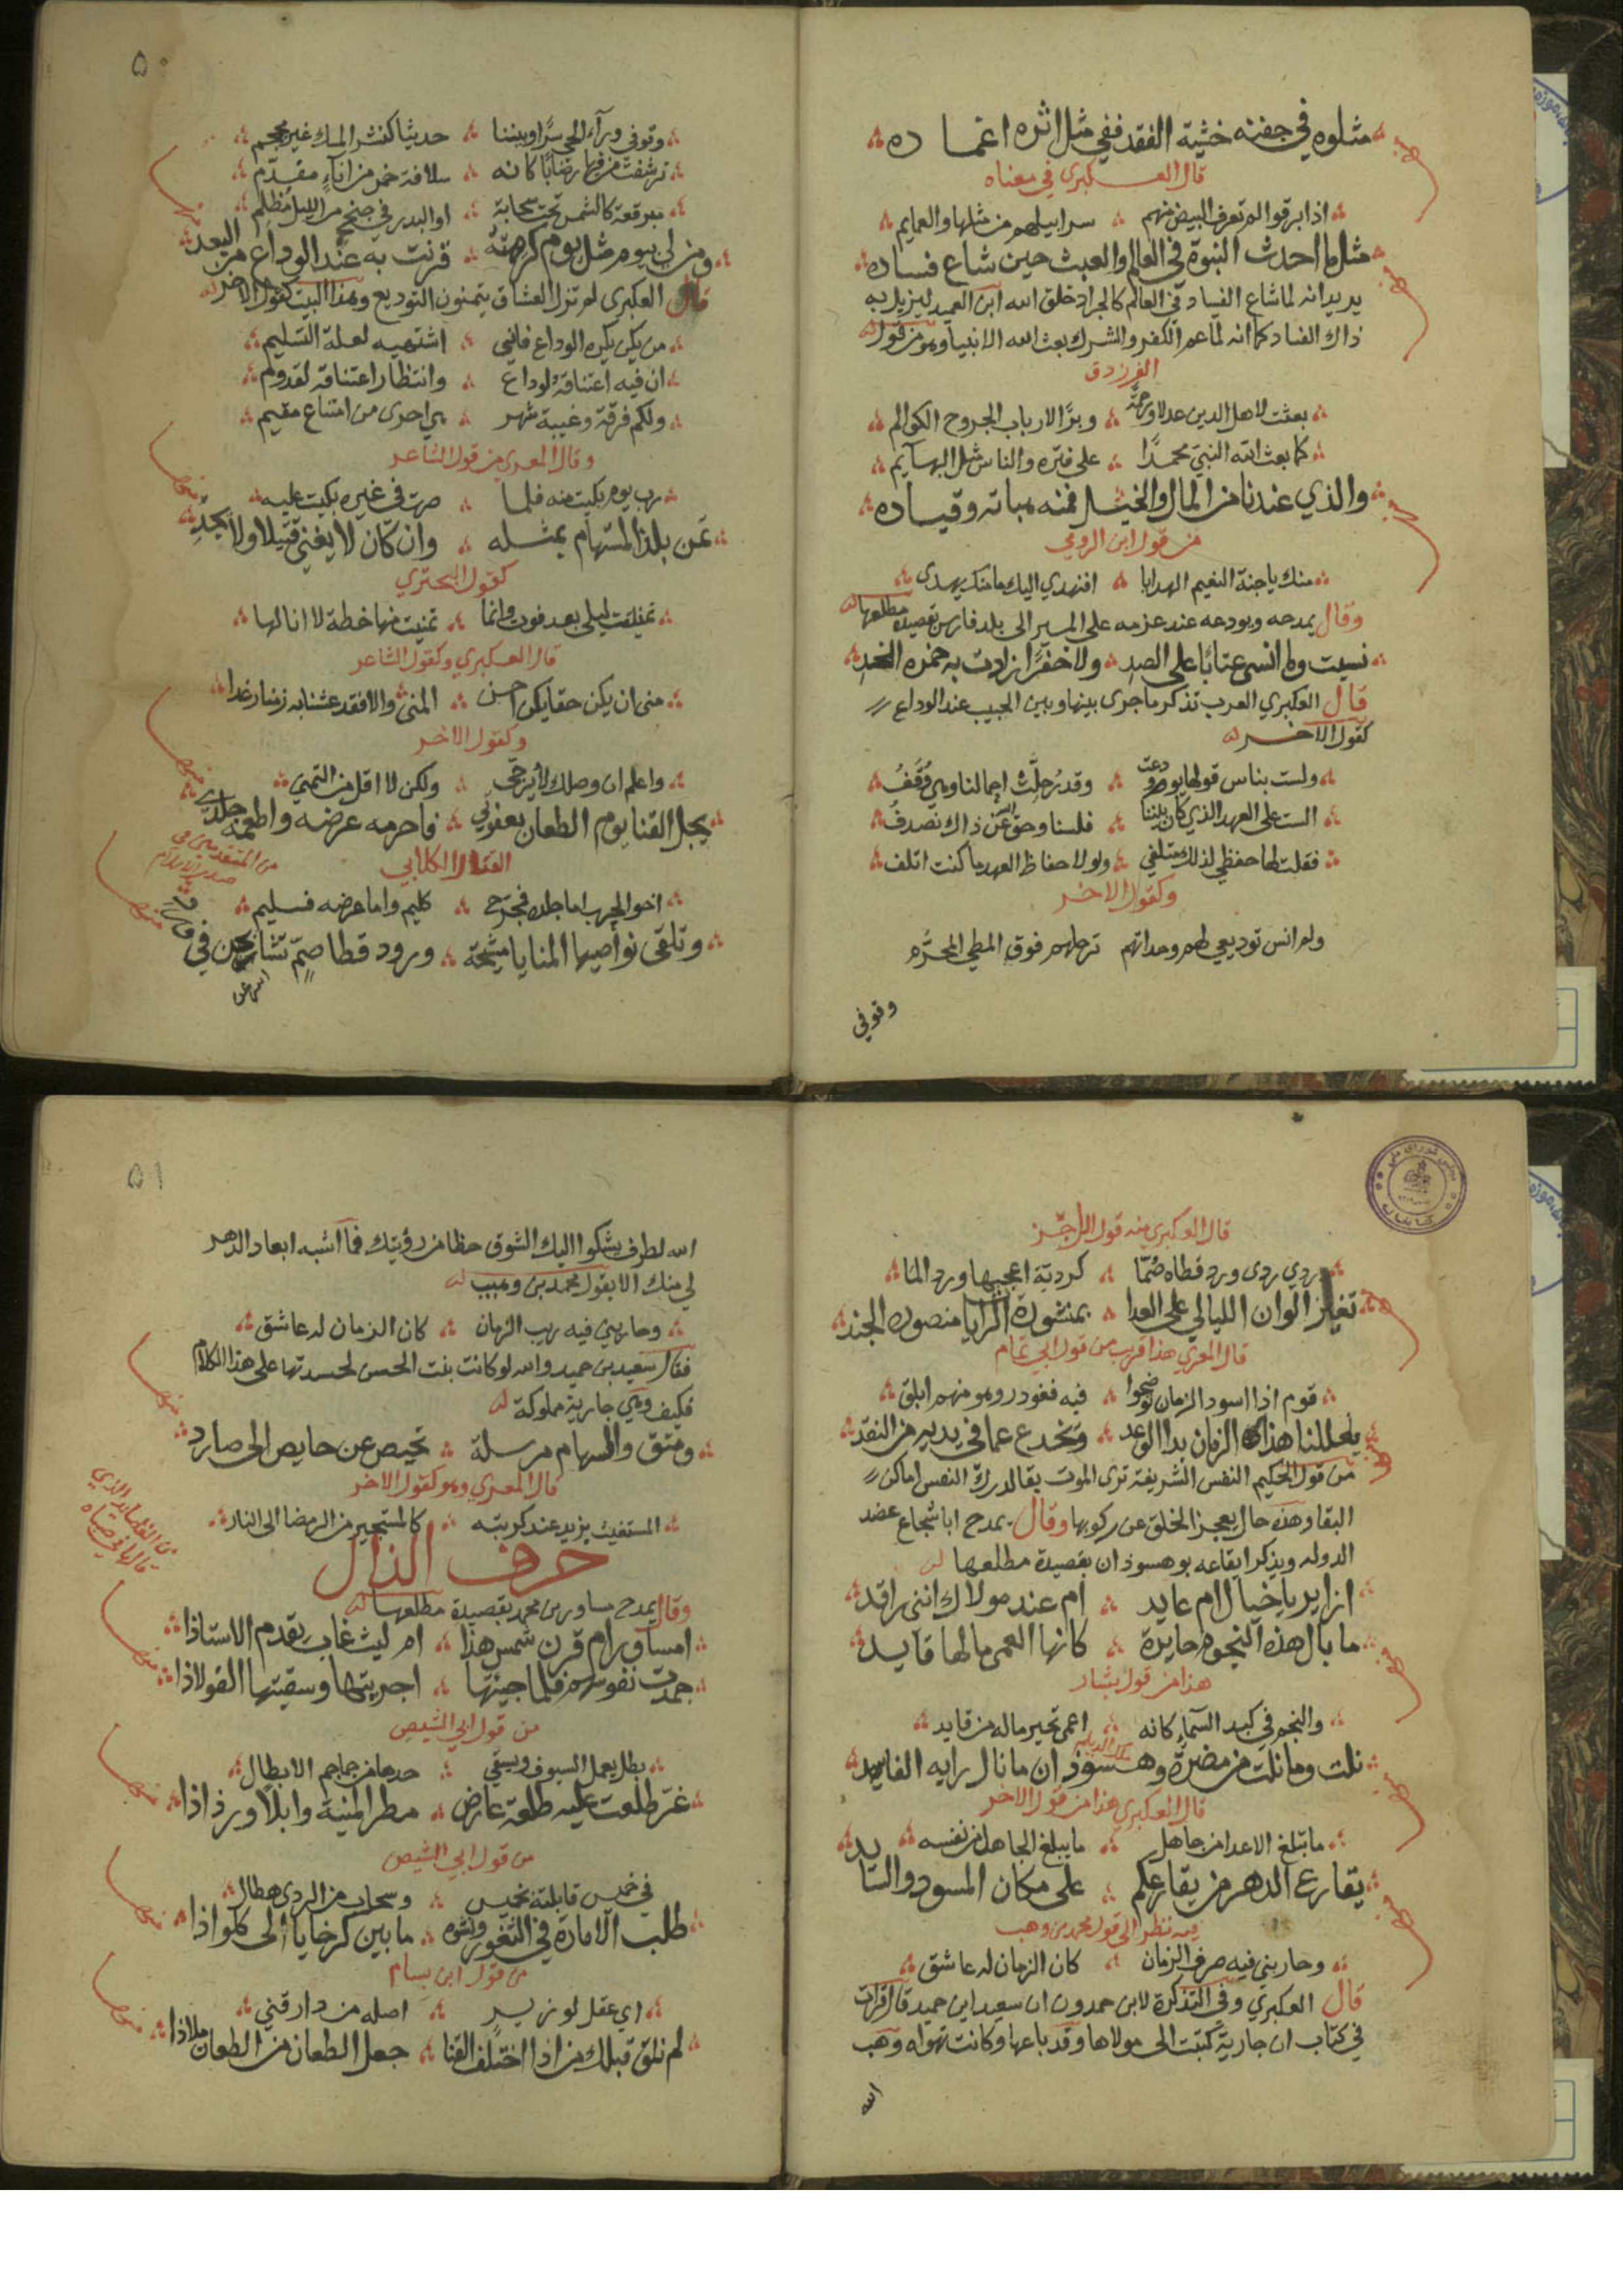 مثلوه في جفنه خشية الفقد ففي مثل اثره اغماده
قال العكبري في معناه
اذا برقوا لم تعرف البيض منهم سرابيلهم من مثلها والعمايم
مثل ما احدث النبوة في العالم والعبث حين شاع فساده
يريد انه لما شاع الفساد في العالم كالجراد خلق الله ابن العميد ليزيل به
ذاك الفساد كما انه لما عم الكفر والشرك بعث الله الانبيا وهو من قول
الفرزدق
بعثت لاهل الدين عدلا ورحمة وبرًا لارباب الجروح الكوالم
كما بعث الله النبي محمدًا على فتره والناس مثل البهآيم
والذي عندنا من المال والخيل فمنه هباته وقياده
من قول ابن الرومي
منك ياجنة النعيم الهدايا افنهدي اليك ما منك يهدى
وقال يمدحه ويودعه عند عزمه على المسير الى بلد فارس بقصيدة مطلعها
نسيت وما انسى عتابًا على الصد ولا خفرًا زادت به حمره الخد
قال العكبري العرب تذكر ما جرى بينها وبين الحبيب عند الوداع
كقول الاخر
ولست بناس قولها يوم ودعت وقد رحلت اجمالنا وهي وقف
الست على العهد الذي كان بيننا فلسنا وحق الله عن ذاك نصدف
فقلت لها حفظي لذلك متلفي ولولا حفاظ العهد ما كنت اتلف
وكقول الاخر
ولم انس توديعي لهم وحداتهم ترحلهم فوق المطي المخزم
وقوفي
٥٠
وقوفي ورآء الحي سرًا وبيننا حديثا كنشر المسك غير مجمجم
ترشفت من فيها رضابا كانه سلافة خمر من انآء مفدم
مبرقعة كالشمس تحت سحابة او البدر في جنح من الليل مظلم
ومن لي بيوم مثل يوم كرهته قرنت به عند الوداع من البعد
قال العكبري لم تزل العشاق يتمنون التوديع وهذا البيت كقول الاخر
من يكن يكره الوداع فاني اشتهيه لعلة التسليم
ان فيه اعتناقة لوداع وانتظار اعتناقة لقدوم
ولكم فرقة وغيبة شهر هي احرى من امتناع مقيم
وقال المعري من قول الشاعر
رب يوم بكيت منه فلما صرت في غيره بكيت عليه
تمن يلذ المستهام بمثله وان كان لا يغني فتيلا ولا يجدي
كقول البحتري
تمنيت ليلى بعد فوت وانما تمنيت منها خطة لا انالها
قال العكبري وكقول الشاعر
منى ان يكن حقا يكن احسن المنى والا فقد عشنا به زمنا رغدا
وكقول الاخر
واعلم ان وصلك لا يرجى ولكن لا اقل من التمني
يحل القنا يوم الطعان بعقوتي فاحرمه عرضه واطعمه جلدي
القتال الكلابي
من المتقدمين في صدر الاسلام
اخو الحرب اما جلده فمجرح كليم واما عرضه فسليم
وتلقى نواصيها المنايا مشيحة ورود قطا صم تشايحن في
قال العكبري منه قول الراجز
ردي ردي ورد قطاه صمّا كدريّة اعجبها ورد الما
تغاير الوان الليالي على العدا بمنشورة الرايا منصورة الجند
قال المعري هذا قريب من قول ابي تمام
قوم اذا اسود الزمان توضحوا فيه فغودر وهو منهم ابلق
يعللنا هذا الزمان بذا الوعد ويخدع عما في يديه من النقد
من قول الحكيم النفس الشريفة ترى الموت بقا لدرك النفس اماكن
البقا وهذه حال يعجز الخلق عن ركوبها وقال يمدح ابا شجاع عضد
الدوله ويذكر ايقاعه بوهسوذان بقصيدة مطلعها
ازاير يا خيال ام عايد ام عند مولاك انني راقد
ما بال هذه النجوم حايرة كانها العمى ما لها قايد
هذا من قول بشار
والنجم في كبد السمآء كانه اعمى تحير ماله من قايد
نلت وما نلت من مضرة وهسوذان ما نال رايه الفاسد
ملك الديلم
قال العكبري هذا من قول الاخر
ما تبلغ الاعدا من جاهل ما يبلغ الجاهل من نفسه
يقارع الدهر من يقارعكم على مكان المسود والسايد
فيه نظر الى قول محمد بن وهب
وحاربني فيه صرف الزمان كان الزمان له عاشق
قال العكبري وفي التذكرة لابن حمدون ان سعيد ابن حميد قال قرات
في كتاب ان جارية كتبت الى مولاها وقد باعها وكانت تهواه وهب
الله
٥١
الله لطرف يشكوا اليك الشوق حظا من رؤيتك فما اشبه ابعاد الدهر
لي منك الا بقول محمد بن وهيب
وحاربني فيه ريب الزمان كان الزمان له عاشق
فقال سعيد بن حميد والله لو كانت بنت الحسن لحسدتها على هذا الكلام
فكيف وهي جارية مملوكة
ومتق والسهام مرسلة تحيص عن حايص الى صارد
قال المعري وهو كقول الاخر
المستغيث بزيد عند كربته كالمستجير من الرمضا الى النار
حرف الذال
من القصايد الذي قالها في صباه
وقال يمدح مساور بن محمد بقصيدة مطلعها
امساور ام قرن شمس هذا ام ليث غاب يقدم الاستاذا
جمدت نفوسهم فلما جيتها اجريتها وسقيتها الفولاذا
من قول ابي الشيص
بطل يعمل السيوف ويسقي حدها من جماجم الابطال
غرّ طلعت عليه طلعة عارض مطر المنية وابلا ورذاذا
من قول ابي الشيص
في خميس قابلته بخميس وسحاب من الردى هطال
طلب الامارة في الثغور ونشوه ما بين كرخايا الى كلواذا
من قول ابن بسام
اي عقل لوزير اصله من دار قني
لم نلق قبلك من اذا اختلف القنا جعل الطعان من الطعان ملاذا